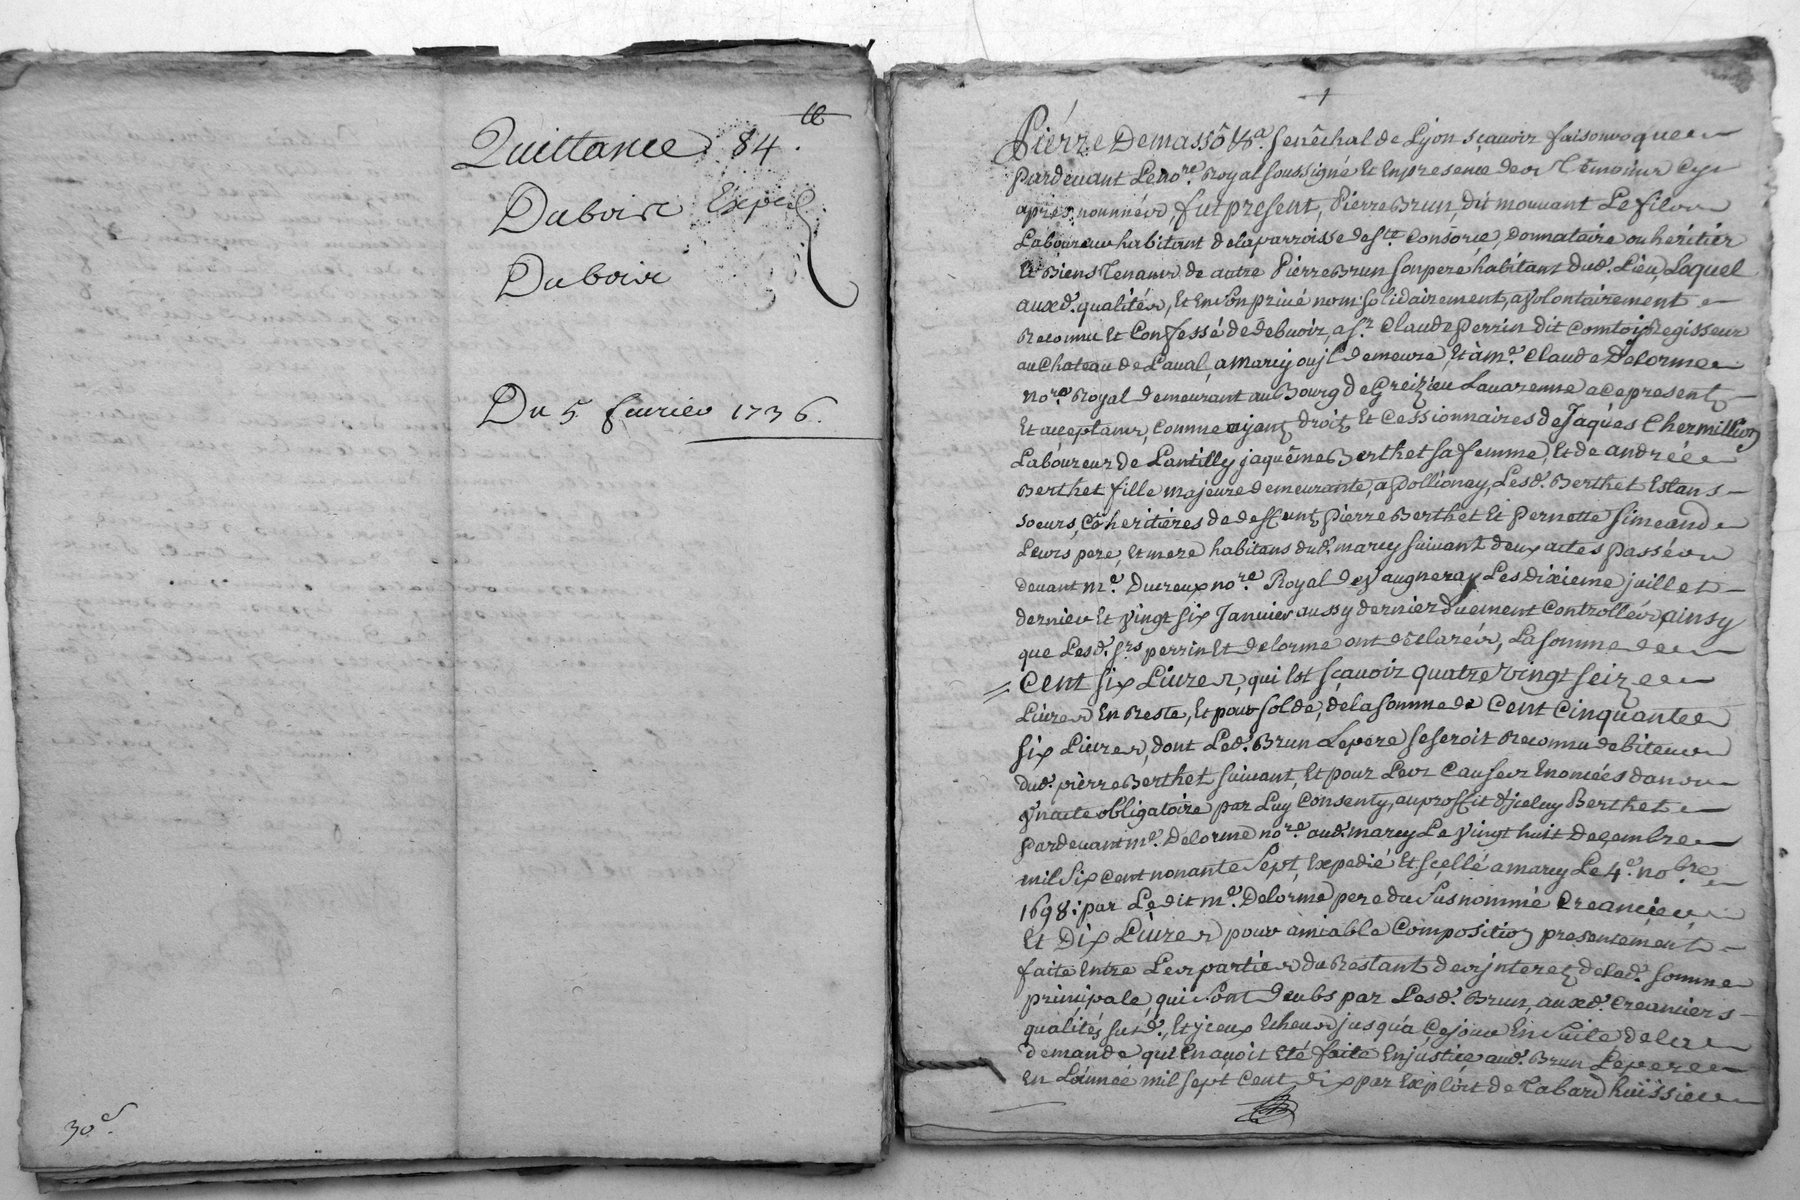 Quittance 84.tt
Dubois Exped
Dubois
Du 5 feurier 1736.
30s.
1
Pierre Demassô &a. senêchal de Lyon sçauoir faisons que
Pardeuant Le nore. Royal soussigné Et En presence des Têmoins Cy
apres nommés, fut present, Pierre Brun, dit mouuant Le fils
Laboureur habitant de la parroisse de ste. Consorce, Donnataire ou heritier
Et Biens Tenant de autre Pierre Brun son pere habitant dud. Lieu, Lequel
auxd. qualités, Et En son priué nom solidairement, a Volontairement
Reconnu Et Confessé de debuoir, a sr. Claude Perrin dit Comtois Regisseur
au Chateau de Laual, a marcy ou jl demeure, Et à me. Claude Delorme
nore. Royal demeurant au Bourg de Greizieu Lauarenne a ce present
Et acceptant, Comme ayent droit Et Cessionnaires de Jaques Chermillion
Laboureur de Lantilly jaquême Berthet sa femme, Et de andrée
Berthet fille majeure demeurante, a Pollionay, Lesd. Berthet Estans
soeurs, Côheritières de deffunt Pierre Berthet Et Pernette Simeand
Leurs pere, Et mere habitans dud. marcy suiuant deux actes passés
deuant me. Ducreux nore. Royal de Vaugneray Les dixieme juillet
dernier Et Vingt six Januier aussy dernier duement Controllés, ainsy
que Lesd. srs perrin Et delorme ont declarés, La somme de
Cent six Liures, qui Est sçauoir quatre Vingt seize
Liures En Reste, Et pour solde, de la somme de Cent Cinquante
six Liures, dont Led. Brun Le pere se seroit Reconnu debiteur
dud. pierre Berthet suiuant, Et pour Les Causes Enoncées dans
Vn acte obligatoire par Luy Consenty, au proffit d'jceluy Berthet
Pardeuant me. Delorme nore. aud. marcy Le Vingt huit Deçembre
mil six cent nonante sept, Expedié Et sçellé a marcy Le 4e. nobre
1698: par Ledit me. Delorme pere du susnommé Creancier
Et Dix Liures pour amiable Composition presentement
faite Entre Les parties du Restant des jnterets de lad. somme
prinçipale, qui sont deubs par Lesd. Brun, auxd. Creanciers
qualités susd., Et jceux Echeus jusqu'a Ce jour En suite de la
demande qui En auoit Eté faite En justice aud. Brun Le pere
En L'année mil sept Cent dix par Exploit de Tabard huissier